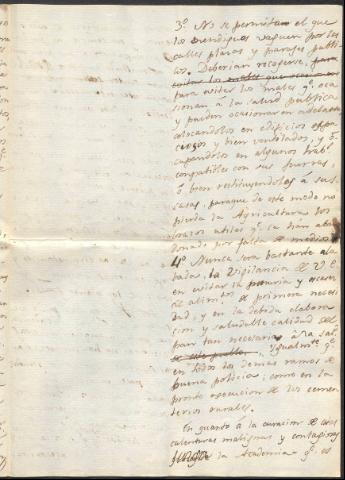 3º. No se permitan el que
los mendigos vaguen por las
calles plazas y parajes publi
cos. Deberian recogerse, para
evitar los males que ocasionan
para evitar los males q.e oca
sionan á la salud publica
y pueden ocasionar en adelante
colocandolos en edificios espa
ciosos y bien ventilados, y o
cupandolos en algunos trab.s
compatibles con sus fuerzas,
ó bien restituyendolos á sus
casas, para que de este modo no
pierda la Agricultura los
brazos utiles q.e se han aban
donado por falta de medios.
4º. Nunca será bastante ala
bada, la vigilancia de V.E.
en evitar la penuria y
de alim.tos de primera necesi
dad, y en la debida elabora
cion y saludable calidad del
pan tan necesario á la sal.
de este pueblo. Igualm.te q.e
en todos los demas ramos de
buena policia; como en la
pronta egecucion de los cemen
terios rurales.
En quanto á la curacion de
calenturas malignas y contagiosas
la Academia q.e es